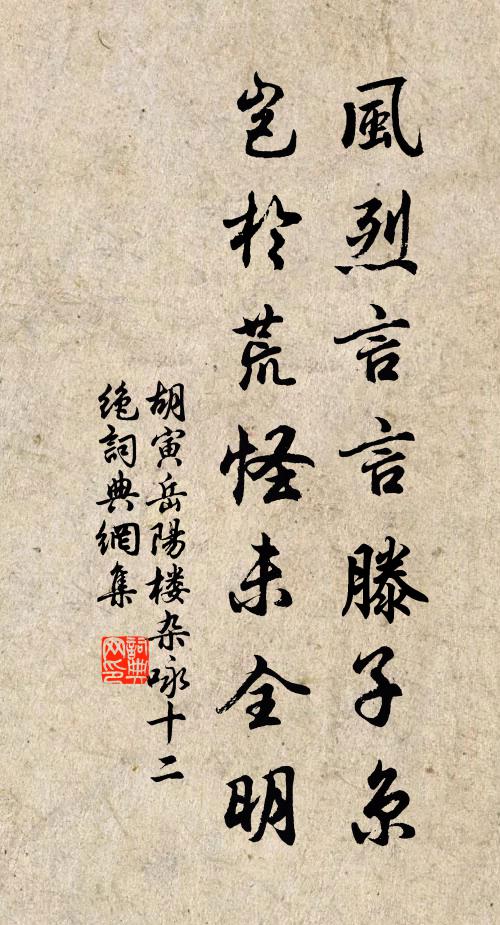 風烈言言滕子京
豈於荒怪未全明
胡寅岳陽楼杂咏十二
绝詞典網集
詞典网印